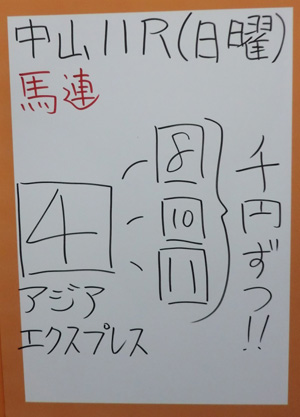 中山11R(日曜)
馬連
4
8
10
11
千円ずつ!!
アジア
エクスプレス